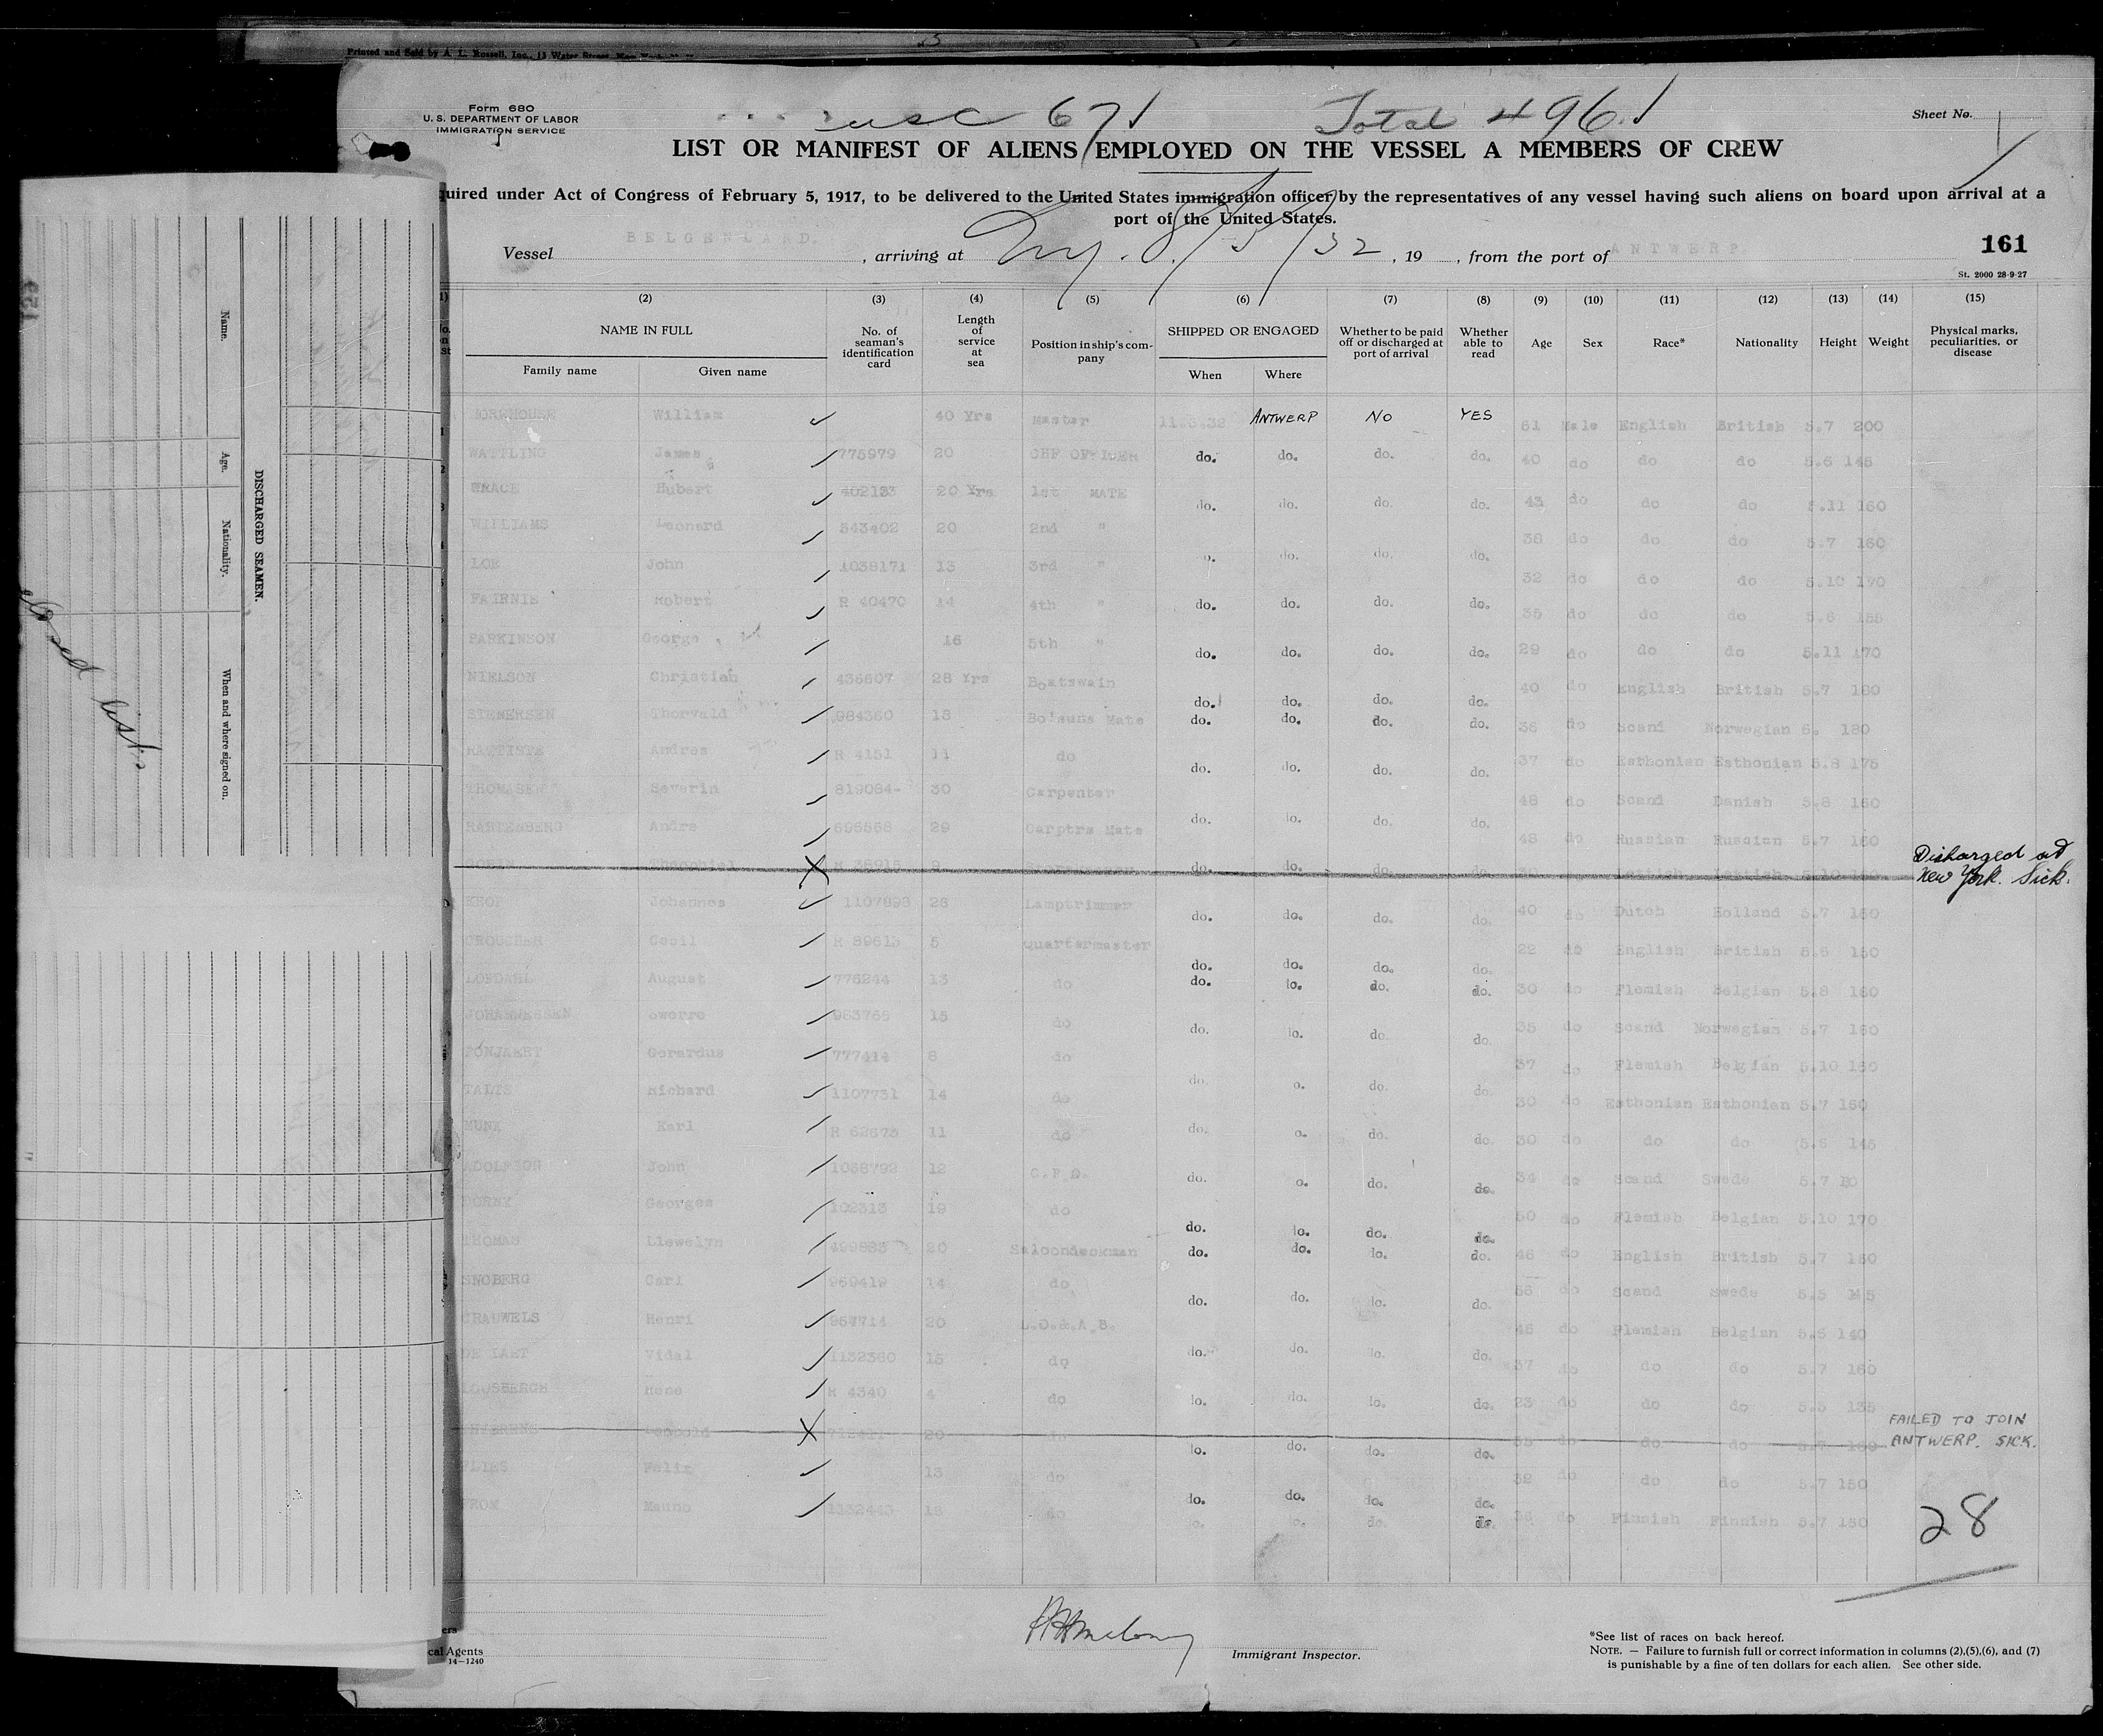 Printed and Sold by A. L. Russell, Inc., 13 Water Street, New York
Form 680
U. S. DEPARTMENT OF LABOR
IMMIGRATION SERVICE
usc 67 Total 496
Sheet No. 1
LIST OR MANIFEST OF ALIENS EMPLOYED ON THE VESSEL A MEMBERS OF CREW
quired under Act of Congress of February 5, 1917, to be delivered to the United States immigration officer by the representatives of any vessel having such aliens on board upon arrival at a
port of the United States.
Vessel BELGENLAND. , arriving at Ny. 8/5/32 , 19 , from the port of ANTWERP
161
St. 2000 28-9-27
(2) (3) (4) (5) (6) (7) (8) (9) (10) (11) (12) (13) (14) (15)
NAME IN FULL
Family name Given name
No. of seaman's identification card
Length of service at sea
Position in ship's company
SHIPPED OR ENGAGED
When Where
Whether to be paid off or discharged at port of arrival
Whether able to read
Age Sex Race* Nationality Height Weight
Physical marks, peculiarities, or disease
William 40 Yrs Master 11.3.32 ANTWERP NO YES 61 Male English British 5.7 200
WATTLING James 775979 20 CHF OFFICER do. do. do. do. 40 do do do 5.6 145
GRACE Hubert 402193 20 Yrs 1st MATE do. do. do. do. 43 do do do 5.11 160
WILLIAMS Leonard 543402 20 2nd " do. do. do. 38 do do do 5.7 160
LOE John 1038171 13 3rd " 32 do do do 5.10 170
FAIRNIE Robert R 40470 14 4th " do. do. do. do. 35 do do do 5.6 155
PARKINSON George 16 5th " do. do. do. do. 29 do do do 5.11 170
NIELSON Christian 436607 28 Yrs Boatswain do. do. do. do. 40 do English British 5.7 180
STENERSEN Thorvald 984360 18 Bo'suns Mate do. do. do. do. 36 do Scand Norwegian 6. 180
Andres R 4151 11 do do. do. do. do. 37 do Esthonian Esthonian 5.8 175
THOMASEN Severin 819084 30 Carpenter 48 do Scand Danish 5.8 160
RASTENBERG Andre 696568 29 Carptrs Mate do. do. do. do. 48 do Russian Russian 5.7 160
Theophiel R 38915 9 do. do. do. Lettish Lettish 5.10
Disharged at
New York. Sick.
KHOF Johannes 1107893 26 Lamptrimmer do. do. do. do. 40 do Dutch Holland 5.7 160
CROUCHER Cecil R 89613 5 Quartermaster do. do. do. do. 22 do English British 5.6 150
LOFDAHL August 776244 13 do do. do. do. do. 30 do Flemish Belgian 5.8 160
JOHANNESSEN Sworre 963765 15 do do. do. do. do. 35 do Scand Norwegian 5.7 160
PONJAERT Gerardus 777414 8 do 37 do Flemish Belgian 5.10 160
TALTS Richard 1107731 14 do do. do. do. 30 do Esthonian Esthonian 5.7 160
MUNK Karl R 62673 11 do do. do. do. 30 do do do 5.6 145
ADOLFSON John 1068792 12 do. do. do. 34 do Scand Swede 5.7
DORNY Georges 102313 19 do do. do. do. do. 50 do Flemish Belgian 5.10 170
THOMAS Llewelyn 499883 20 Saloondeckman do. do. do. do. 46 do English British 5.7 150
SNOBERG Carl 969419 14 do do. do. do. do. do Scand Swede 5.5 145
CRAUWELS Henri 957714 20 L.O.&.A.B. 46 do Flemish Belgian 5.5 140
Vidal 1132360 15 do do. do. do. do. 37 do do do 5.7 160
Rene R 4340 4 do do. do. do. do. 23 do do do 5.5 135
Leopold 20 do do. do. do. do. do do do 5.7
FAILED TO JOIN
ANTWERP. SICK.
Felix 13 do do. do. do. do. 32 do do do 5.7 150
Mauno 1132443 18 do do. do. do Finnish Finnish 5.7 150
28
Immigrant Inspector.
cal Agents
14-1240
*See list of races on back hereof.
NOTE. — Failure to furnish full or correct information in columns (2),(5),(6), and (7)
is punishable by a fine of ten dollars for each alien. See other side.
DISCHARGED SEAMEN.
Name. Age. Nationality. When and where signed on.
list